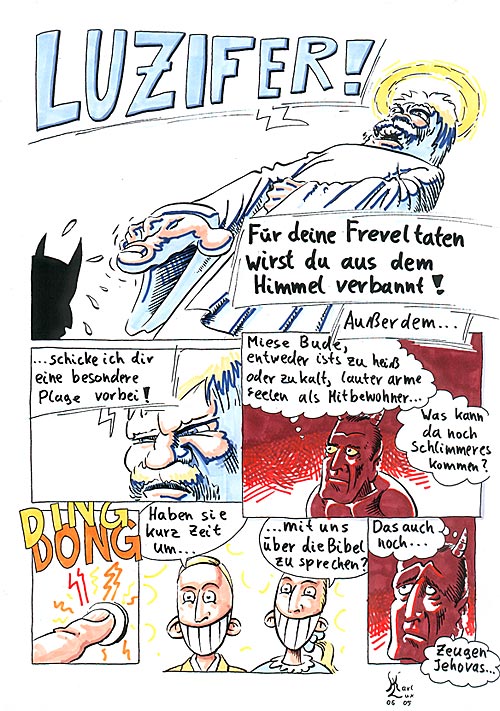 LUZIFER!
Für deine Freveltaten
wirst du aus dem
Himmel verbannt!
Außerdem...
...schicke ich dir
eine besondere
Plage vorbei!
Miese Bude,
entweder ists zu heiß
oder zu kalt, lauter arme
Seelen als Mitbewohner...
Was kann
da noch
Schlimmeres
kommen?
DING
DONG
Haben sie
kurz Zeit
um...
...mit uns
über die Bibel
zu sprechen?
Das auch
noch...
Zeugen
Jehovas...
Karl
Lux
06 05